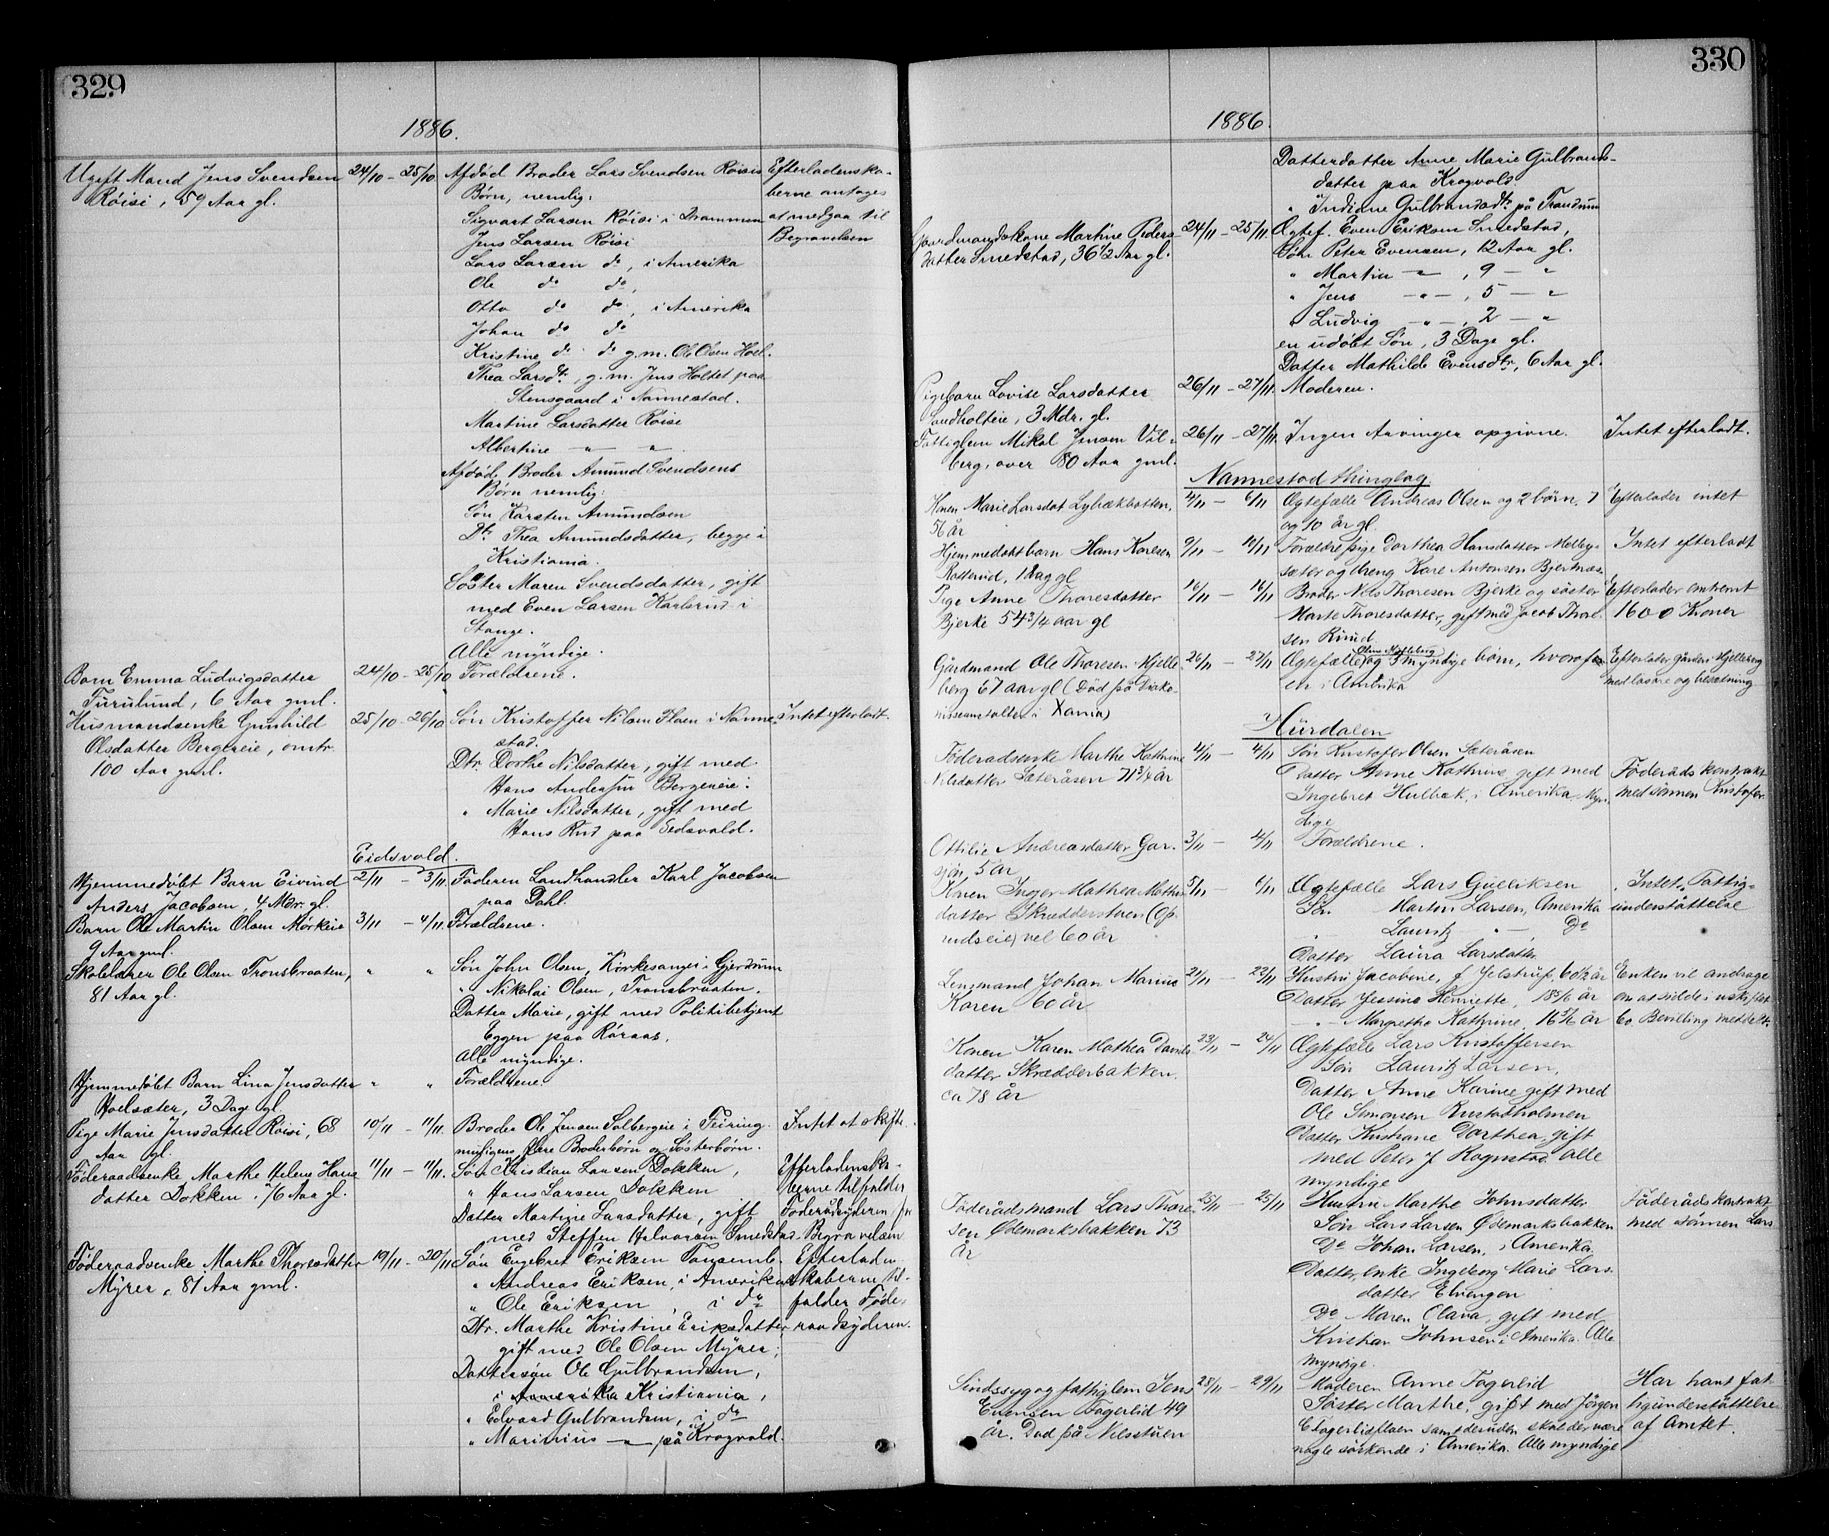 329
1886.
Ugift Mand Jens Svendsen 24/10 - 25/10 Afdød Broder Lars Svendsen Röisis Efterladenska-
Röisi, 59 Aar gl. Börn, nemlig: berne antages
Sigvart Larsen Röisi i Drammen at medgaa til
Jens Larsen Röisi Begravelsen
Lars Larsen do, i Amerika
Ole do do,
Otto do do, i Amerika
Johan do do
Kristine do do g.m. Ole Olsen Hoel.
Thea Larsdt., g.m. Jens Holtet paa
Stensgaard i Nannestad.
Martine Larsdatter Röisi
Albertine — " — " .
Afdöd Broder Amund Svendsens
Börn nemlig:
Sön Karsten Amundsen
Dt. Thea Amundsdatter, begge i
Kristiania.
Söster Maren Svendsdatter, gift
med Even Larsen Karlsrud i
Stange.
Alle myndige.
Barn Emma Ludvigsdatter 24/10 - 25/10 Forældrene.
Furulund, 6 Aar gml.
Husmandsenke Gunhild 25/10 - 26/10 Sön Kristoffer Nilsen Floen i Nanne- Intet efterladt.
Olsdatter Bergereie, omtr. stad.
100 Aar gml. Dtr. Dorthe Nilsdatter, gift med
Hans Andersen Bergereie.
" Marie Nilsdatter, gift med
Hans Rud paa Eidsvold.
Eidsvold.
Hjemmedöbt Barn Eivind 2/11 - 3/11 Faderen Landhandler Karl Jacobsen
Anders Jacobsen, 4 Mdr. gl. paa Dahl.
Barn Ole Martin Olsen Mørkeie 3/11 - 4/11 Forældrene.
9 Aar gml.
Skolelærer Ole Olsen Tronsbraaten, " " Sön John Olsen, Kirkesanger i Gjerdrum
81 Aar gl. " Nikolai Olsen, Tronsbraaten.
Datter Marie, gift med Politibetjent
Eggen paa Röraas.
Alle myndige.
Hjemmedöbt Barn Lina Jensdatter " " Forældrene
Hoelsæter, 3 Dage gl.
Pige Marie Jensdatter Röisi, 68 10/11 - 11/11. Broder Ole Jensen Solbergeie i Feiring. Intet at skifte.
Aar gl. muligens flere Broderbörn og Sösterbörn.
Föderaadsenke Marthe Helene Hans 11/11 - 11/11. Sön Kristian Larsen Dokken, Efterladenska-
datter Dokken, 76 Aar gl. " Hans Larsen Dokken berne tilfalder
Datter Martine Larsdatter, gift Föderaadsyderen for
med Steffen Halvorsen Smedstad. Begravelsen
Föderaadsenke Marthe Thorsdatter 19/11 - 20/11 Sön Engebret Eriksen Efterladen-
Myrer, 81 Aar gml. " Andreas Eriksen, i Amerika skaberne til-
" Ole Eriksen, i do falder Föde-
Dtr. Marthe Kristine Eriksdatter raadsyderen.
gift med Ole Olsen Myrer;
Dattersön Ole Gulbrandsen,
i Amerika Kristiania,
" Edvard Gulbrandsen, i do
" Marinius — " — på Krogvold.
330
1886.
Datterdatter Anne Marie Gulbrands-
datter paa Krogvold.
" Indiane Gulbrandsdt. på Trandum
Gaardmandskone Martine Peders- 24/11 - 25/11 Ægtef. Even Eriksen Smedstad,
datter Smedstad, 36 1/2 Aar gl. Sön Peter Evensen, 12 Aar gl.
" Martin — " — , 9 — "
" Jens — " — , 5 — "
" Ludvig — " — , 2 — "
en udöbt Sön, 3 Dage gl.
Datter Mathilde Evensdtr., 6 Aar gl.
Pigebarn Lovise Larsdatter 26/11 - 27/11 Moderen.
Sandholteie, 3 Mdr. gl.
Fattiglem Mikal Jensen Vil- 26/11 - 27/11 Ingen Arvinger opgivne. Intet efterladt.
berg, over 80 Aar gml.
Nannestad thinglag
Konen Marie Larsdat Lybækbatten, 4/11 - 6/11 Ægtefælle Andreas Olsen og 2 börn, 7 Efterlader intet
56 år og 10 år gl.
Hjemmedöbt barn Hans Karesen 9/11 - 10/11 Forældre pige Dorthea Hansdatter Molby- Intet efterladt
Rotterud, 1 Dag gl sæter og dreng Kare Antonsen Bjertnæs.
Pige Anne Thoresdatter 16/11 - 16/11 Broder Nils Thoresen Bjerke og söster Efterlader omtrent
Bjerke 54 3/4 aar gl Marte Thoresdatter, gift med Jacob Thor- 1600 Kroner
sen Rimd.
Gårdmand Ole Thoresen Hjelle- 26/11 - 27/11 Ægtefælle og 3 myndige börn, hvoraf Efterlader gården Hjelleberg
berg 67 aar gl (Död på Diako- en i Amerika med lösöre og besætning
nisseanstalten i Xania)
Hurdalen
Föderadsenke Marthe Kathrine 4/11 - 4/11 Sön Kristofer Olsen Sæteråsen
Nilsdatter Sæteråsen 71 3/4 år Datter Anne Kathrine gift med Föderåds kontrakt
Ingebret Hulbak, i Amerika. Myn- med sönnen Kristofer
dige
Ottilie Andreasdatter Gar- 3/11 - 4/11 Forældrene.
sjön, 5 år
Konen Inger Mathea Mathis 5/11 - 6/11 Ægtefælle Lars Gulliksen Intet. Fattig-
datter Skredderstuen (Op Sön Martin Larsen, Amerika understøttelse
undseie) vel 60 år " Lauritz — " — Do
Datter Laura Larsdatter
Lensmand Johan Marius 21/11 - 22/11 Hustru Jacobine, f. Jelstrup, 60 1/2 år Enken vil andrage
Koren 60 år Datter Jessine Henriette, 18 5/6 år om at sidde i uskiftet
— " — Margrethe Kathrine 16 5/6 år bo. Bevilling meddelt.
Konen Karen Mathea Davids 23/11 - 24/11 Ægtefælle Lars Kristoffersen
datter Skrædderbakken. Sön Lauritz Larsen,
ca 78 år Datter Anne Karine gift med
Ole Simonsen Knatsholmen
Datter Kristiane Dorthea gift
med Peter J Rognstad Alle
myndige
Föderådsmand Lars Thore 25/11 - 25/11 Hustru Marthe Johnsdatter Föderådskontrakt
sen Ødemarksbakken 73 Sön Lars Larsen Ødemarksbakken med sönnen Lars
år Do Johan Larsen, i Amerika
Datter, enke Ingeborg Marie Lars
datter Elvengen
Do Maren Olava, gift med
Kristian Johnsen i Amerika. Alle
myndige.
Sindssyg og fattiglem Jens 28/11 - 29/11 Moderen Anne Fagerlid Har havt fat-
Evensen Fagerlid 49 Söster Marthe, gift med Jörgen tigunderstøttelse
år. Död på Nilsstuen samt desuden skal der være af Amtet.
nogle söskende i Amerika. Alle myndige